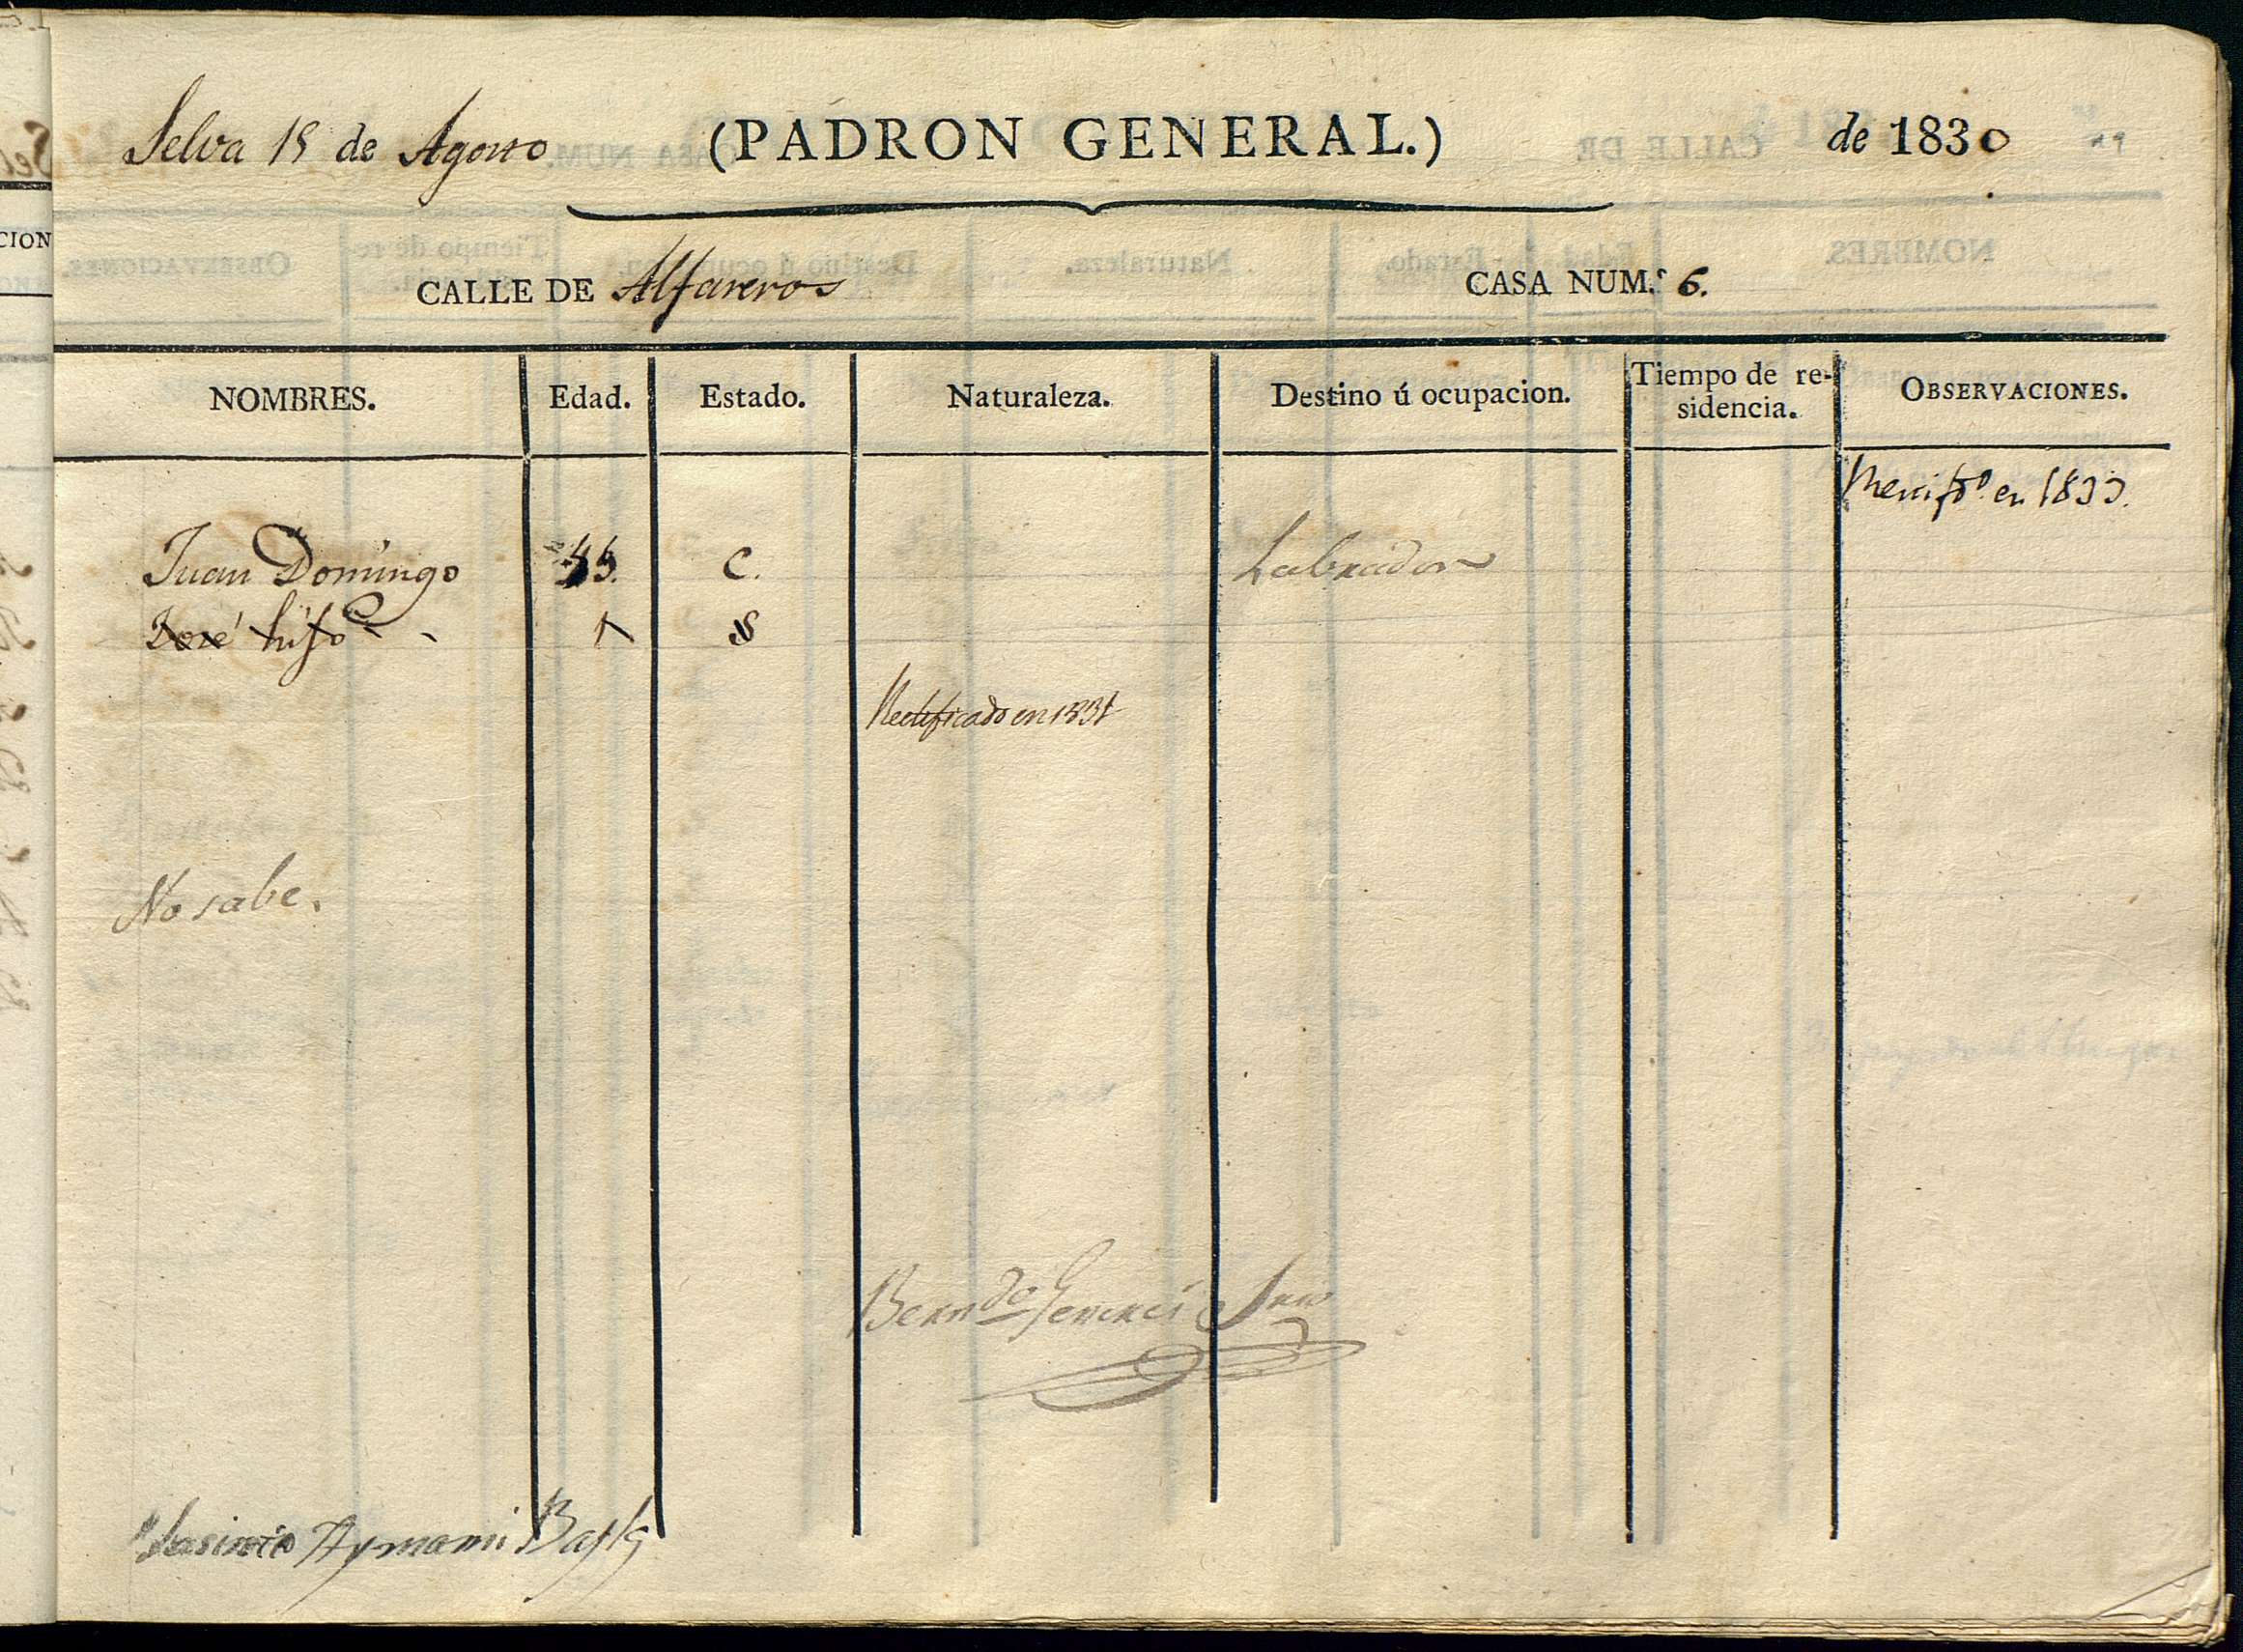 Selva 15 de Agosto (PADRON GENERAL.) de 1830
CALLE DE Alfareros CASA NUM.º 6.
NOMBRES. Edad. Estado. Naturaleza. Destino ú ocupacion. Tiempo de re-
sidencia. OBSERVACIONES.
en 1833.
Juan Domingo C. Labrador
José hijo S
Rectificado en 1831
No sabe.
Bern.do
Aymami Bayle